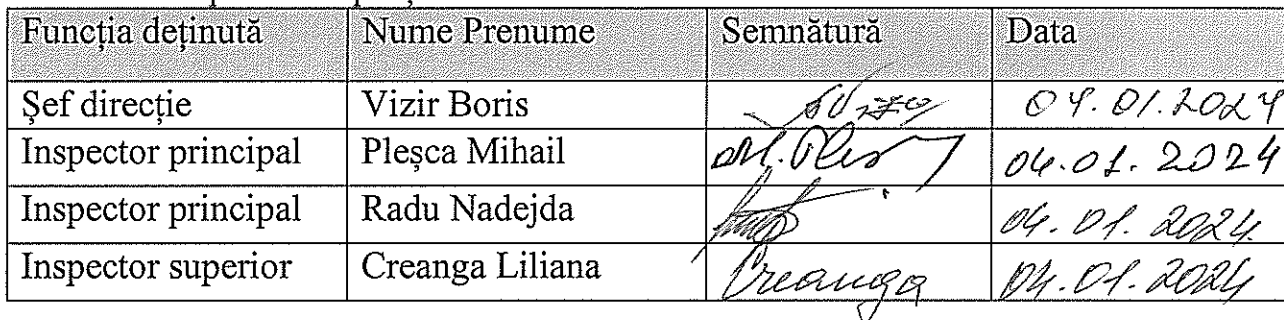 Funcția deținută Nume Prenume Semnătură Data
Șef direcție Vizir Boris 04.01.2024
Inspector principal Pleșca Mihail 04.01.2024
Inspector principal Radu Nadejda 04.01.2024
Inspector superior Creanga Liliana Creanga 04.01.2024